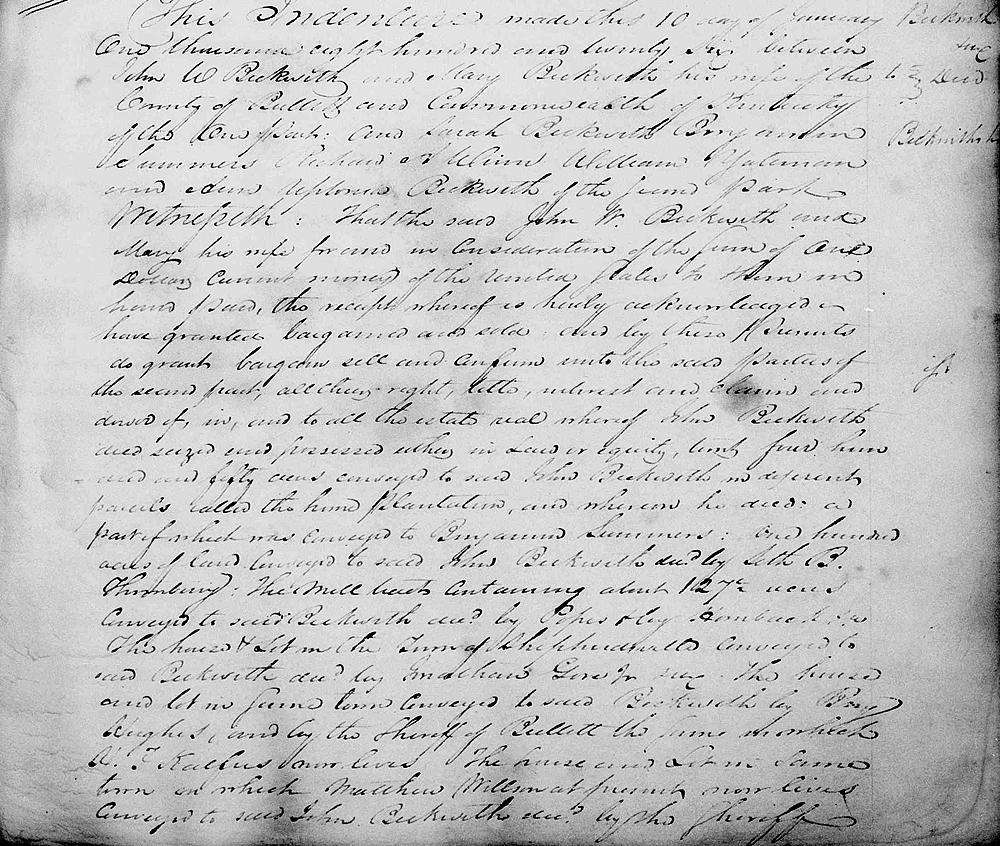 This Indenture made this 10 day of January Beckwith
One thousand eight hundred and twenty six between &c
John W Beckwith and Mary Beckwith his wife of the to Deed
County of Bullitt and Commonwealth of Kentucky
of the One part: and Sarah Beckwith Benjamin Beckwiths
Summers Richard Winn William Yateman
and Uptown Beckwith of the second part
Witnesseth: That the said John W. Beckwith and
Mary his wife for and in Consideration of the sum of One
Dollar Current money of the United States to them in
hand paid, the receipt whereof is hereby acknowledged
have granted bargained and sold and by these presents
do grant bargain sell and confirm unto the said parties of
the second part, all their right, title, interest and Claim and
dower of, in, and to all the estate real whereof John Beckwith
died seized and possessed either in Law or equity, four hun
dred and fifty acres conveyed to said John Beckwith in different
parcels called the home plantation, and whereon he died: a
part of which was Conveyed to Benjamin Summers: One hundred
acres of land Conveyed to said John Beckwith decd by Seth B.
Thornbury: The Mill tract Containing about 127 acres
Conveyed to said Beckwith decd by Pope & by Hornback
The house & Lot in the Town of Shepherdsville Conveyed to
said Beckwith decd by Jonathan Gore Jr The house
and lot in same town Conveyed to said Beckwith by
Hughes, and by the Sheriff of Bullitt the same in which
Kalfus now lives The house and Lot in same
town in which Matthew Willson at present now lives
Conveyed to said John Beckwith decd by the Sheriff